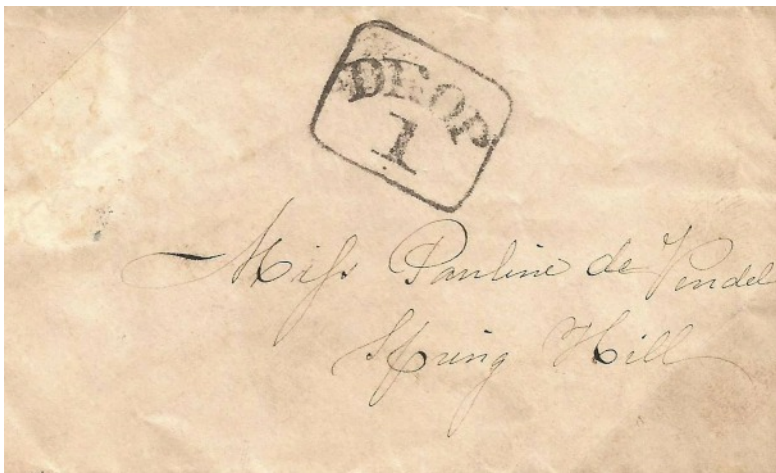 DROP
1
Miss Pauline de Vendel
Spring Hill